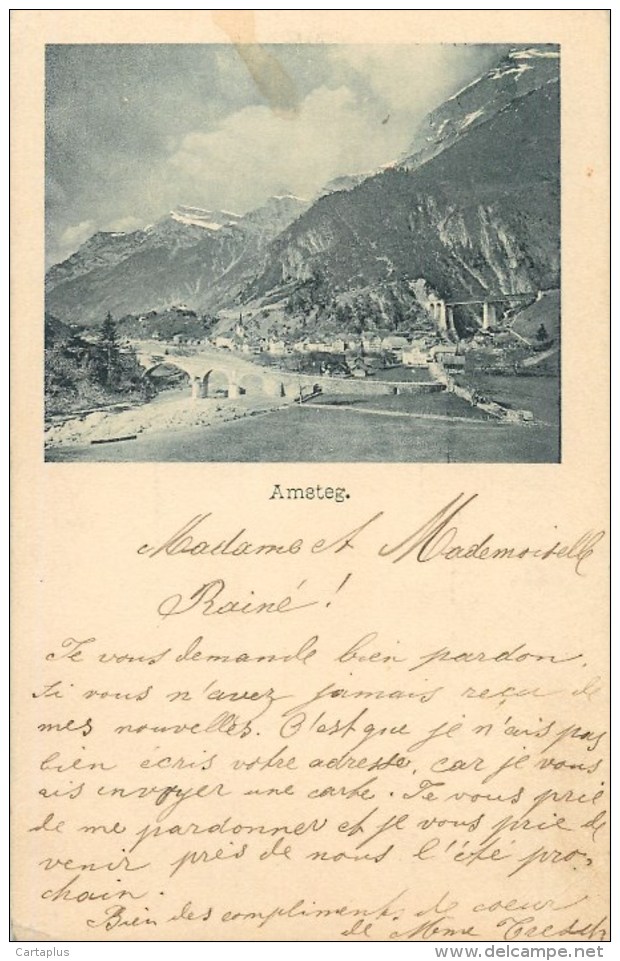 Amsteg.
Madame et Mademoiselle
Rainé !
Je vous demande bien pardon,
si vous n'avez jamais reçu de
mes nouvelles. C'est que je n'ais pas
bien écris votre adresse, car je vous
ais envoyer une carte. Je vous prie
de me pardonner et je vous prie de
venir près de nous l'été pro-
chain.
Bien des compliments de coeur
de Mme Tresch
Cartaplus
www.delcampe.net